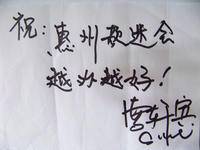 祝:惠州歌迷会
越办越好!